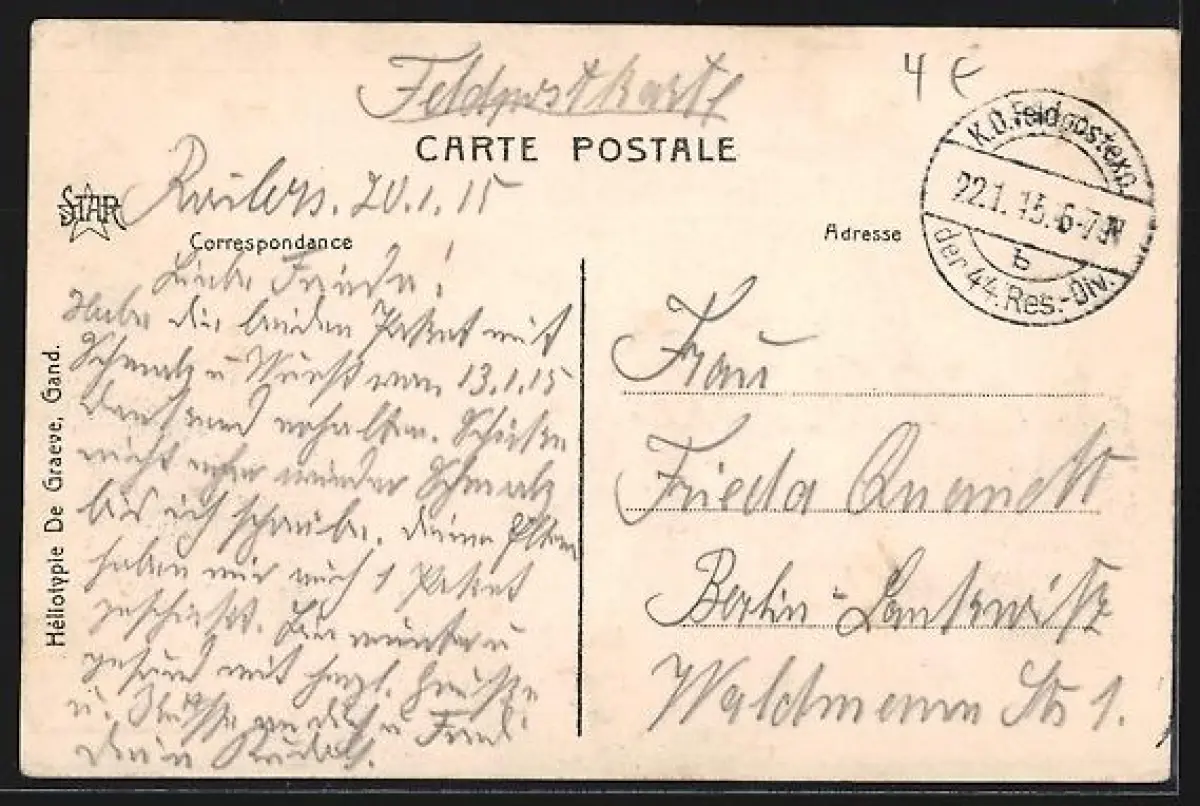 Feldpostkarte
4 €
CARTE POSTALE
K.D.Feldpostexp.
22.1.15.6-7N
b
der 44.Res.-Div.
STAR
20.1.15
Correspondance
Adresse
Liebe Frieda!
Habe die beiden Paket mit
Schmalz u Wurst vom 13.1.15
dankend erhalten. Schicke
nicht eher wieder Schmalz
bis ich schreibe. Deine Eltern
haben mir auch 1 Paket
geschickt. Bin munter u
gesund mit herzl. Grüße
u. Küsse an dich u Fred.
dein Rudolf.
Frau
Frieda Quandt
Berlin-Lankwitz
Waldmann Str 1.
Héliotypie De Graeve, Gand.